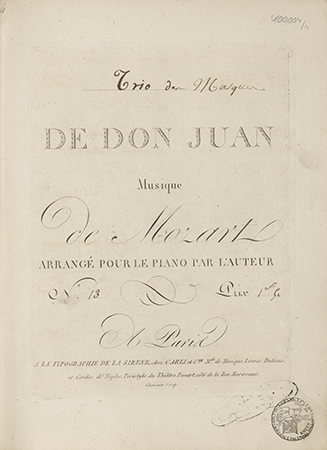 400004/4
Trio des Masques
DE DON JUAN
Musique
de Mozart
ARRANGÉ POUR LE PIANO PAR L'AUTEUR
N.° 13 Prix
A Paris
A LA TYPOGRAPHIE DE LA SIRENE, chez CARLI et C.ie M.ds de Musique, Livres Italiens,
et Cordes de Naples, Péristyle du Théâtre Favart, côté de la Rue Marivaux.